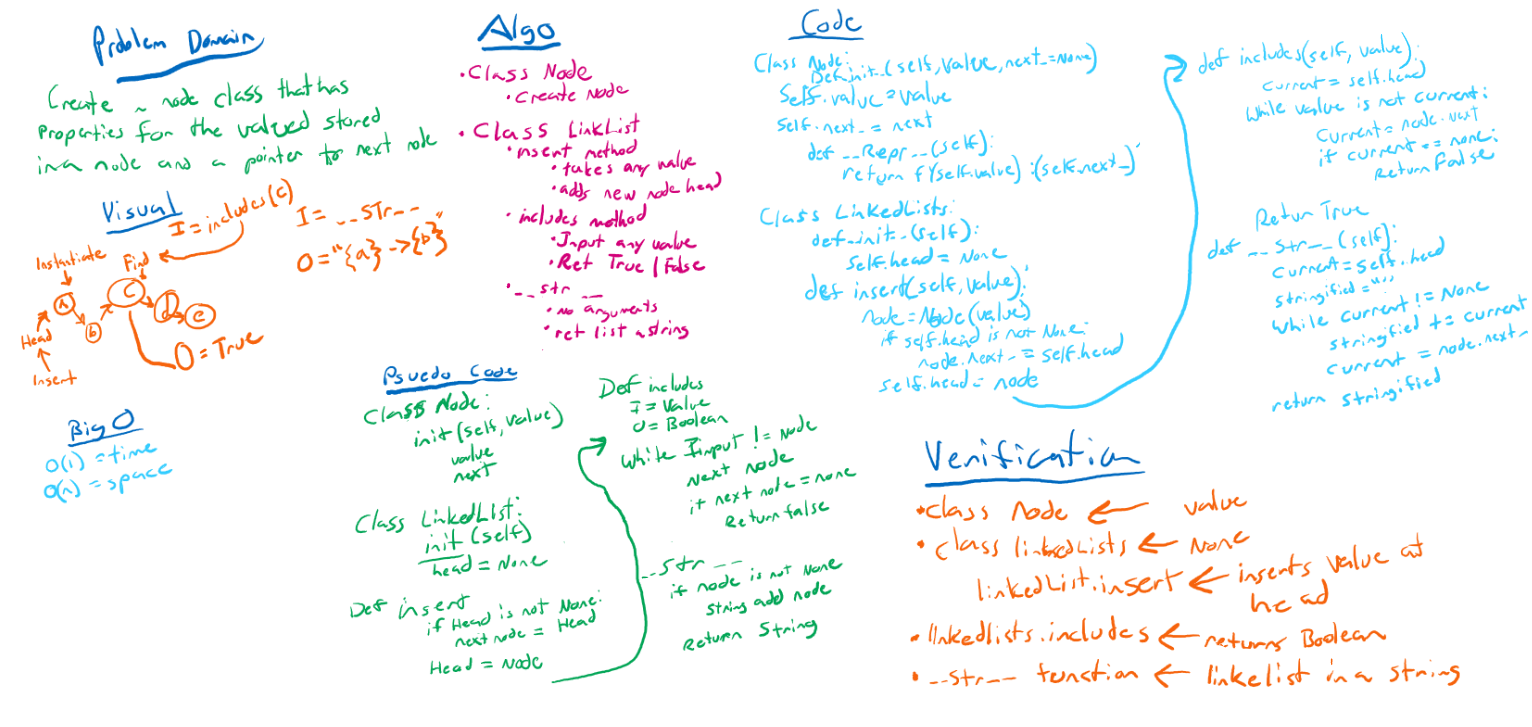 Problem Domain
Create a node class that has
Properties for the valued stored
in a node and a pointer to next node
Visual
I = includes(C)
I = __STr__
O = "{a} -> {b}"
Instantiate
Find
a
b
C
D
e
Head
Insert
O = True
Big O
O(1) = time
O(n) = space
Algo
• Class Node
• Create Node
• Class LinkList
• insert method
• takes any value
• adds new node head
• includes method
• Input any value
• Ret True | False
• __str__
• no arguments
• ret list a string
Psuedo Code
Class Node:
init(self, value)
value
next
Class LinkedLIst:
init(self)
head = None
Def insert
if Head is not None:
next node = Head
Head = Node
Def includes
I = Value
O = Boolean
While Iinput != Node
Next node
if next node = none
Return false
__str__
if node is not None
String add node
Return String
Code
Class Node:
Def init_(self, value, next_=None)
Self.value = value
Self.next_ = next
def __Repr__(self):
return f'(self.value) : (self.next_)'
Class LinkedLists:
def_init_(self):
self.head = None
def insert(self, value):
node = Node(value)
if self.head is not None:
node.next_ = self.head
self.head = node
def includes(self, value):
current = self.head
While value is not current:
current = node.next
if current == none:
Return False
Return True
def __str__(self):
current = self.head
stringified = ""
while current != None
stringified += current
current = node.next_
return stringified
Verification
• Class Node ← value
• Class linkedLists ← None
linkedList.insert ← inserts value at
head
• linkedlists.includes ← returns Boolean
• __str__ function ← linkelist in a string